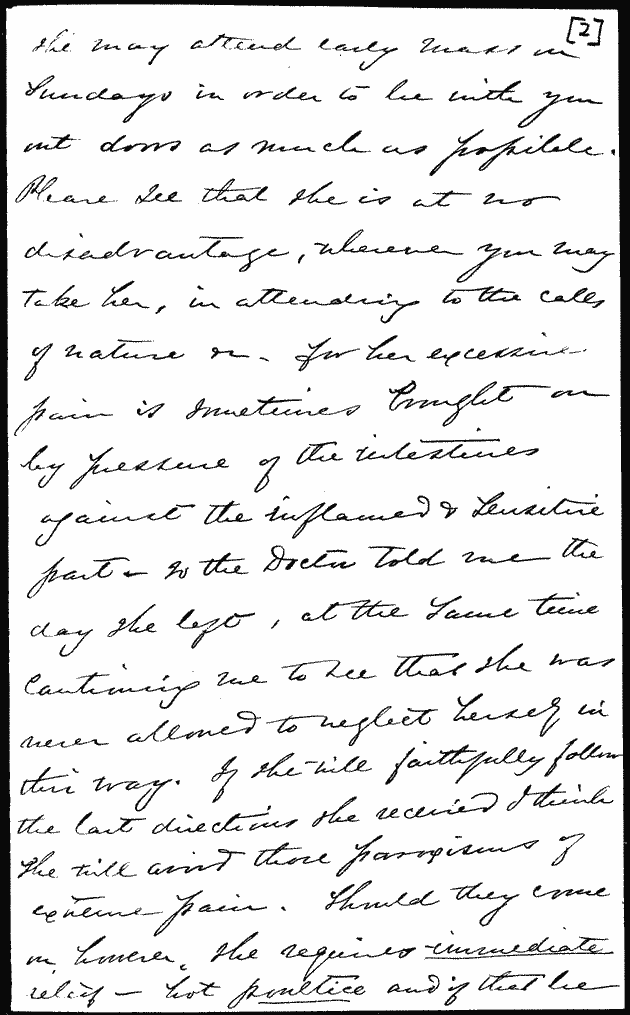 [2]
she may attend early mass on
Sundays in order to be with you
out doors as much as possible.
Please see that she is at no
disadvantage, wherever you may
take her, in attending to the calls
of nature &c - for her excessive
pain is sometimes brought on
by pressure of the intestines
against the inflamed & sensitive
part - so the Doctor told me the
day she left, at the same time
cautioning me to see that she was
never allowed to neglect herself in
this way. If she will faithfully follow
the last directions she received I think
she will avoid those paroxisms of
extreme pain. Should they come
on however, she requires immediate
relief - hot poultice and if that be